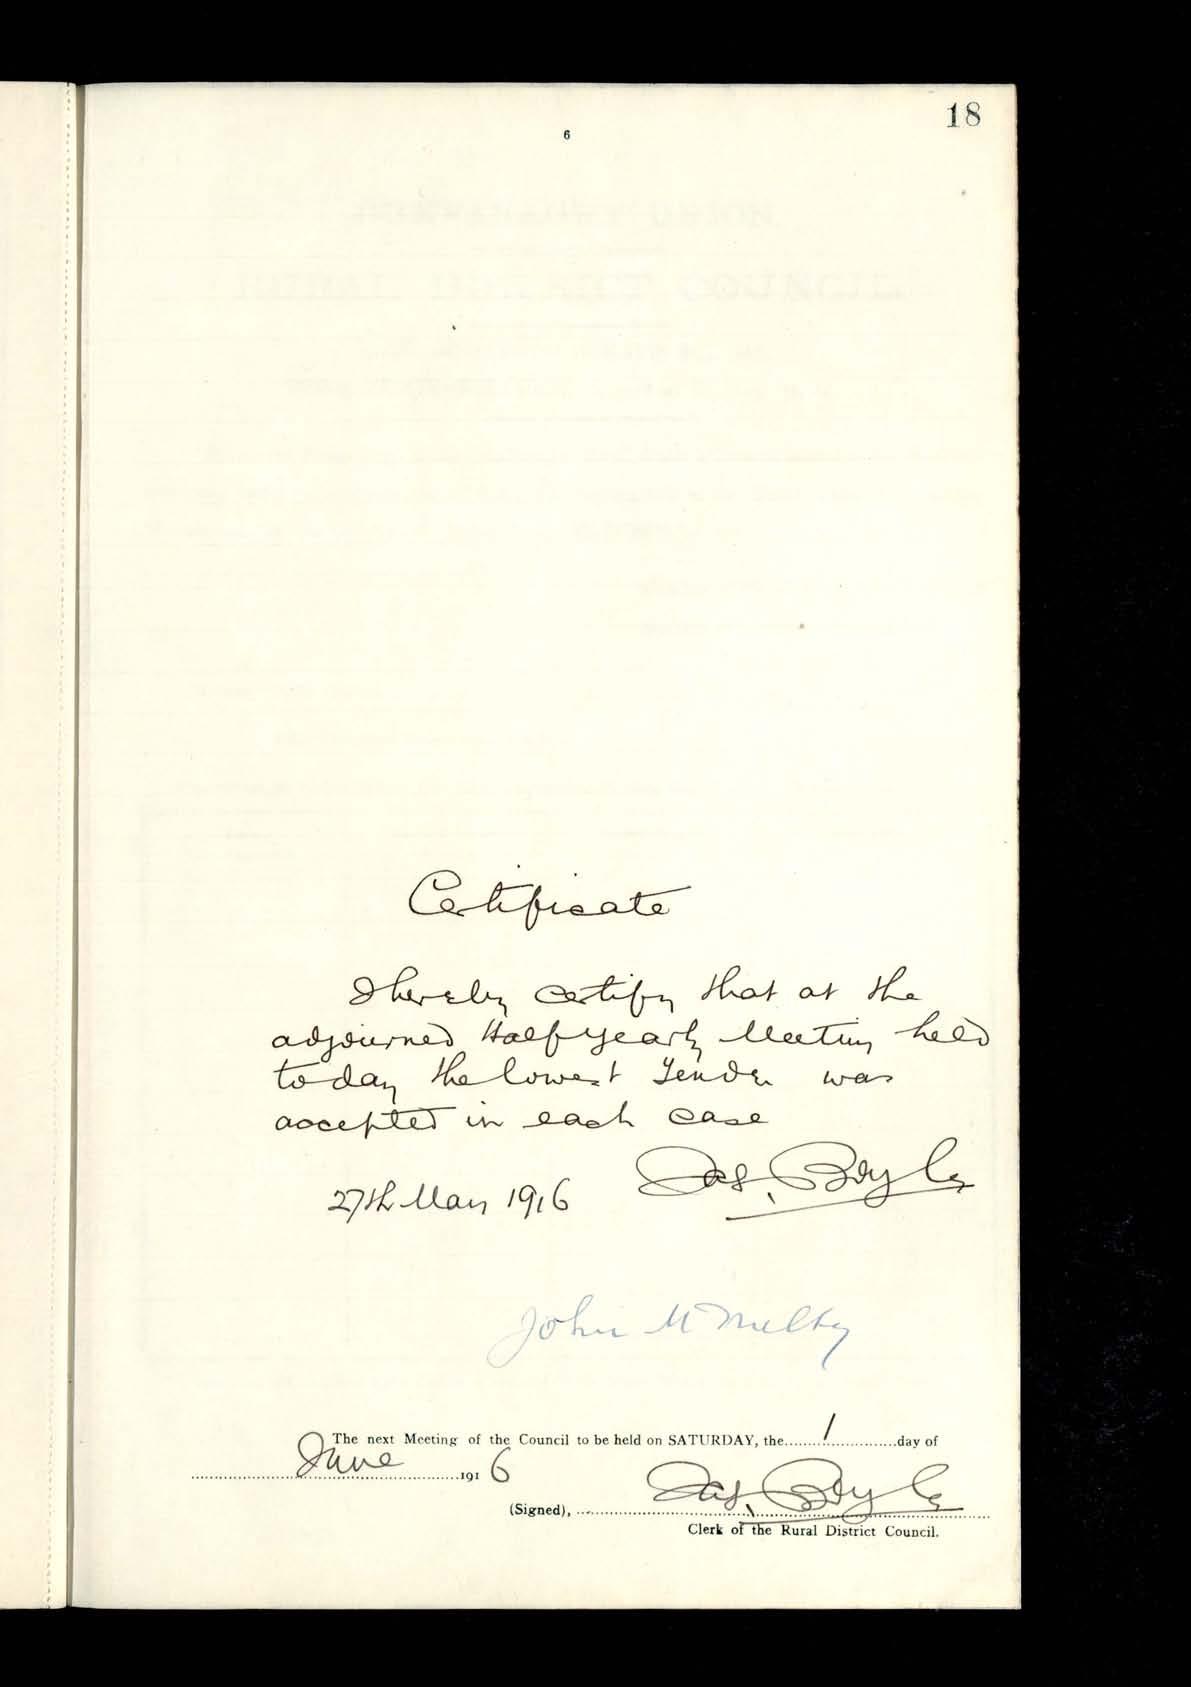 18
6
Certificate
I hereby certify that at the
adjourned Half Yearly Meeting held
today the lowest Tender was
accepted in each case
Jas. Boyle
27th May 1916
John
The next Meeting of the Council to be held on SATURDAY, the 1 day of
June 1916
(Signed), Jas. Boyle
Clerk of the Rural District Council.